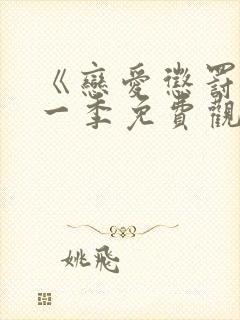 《戀愛懲罰
一季免費觀
姚飛